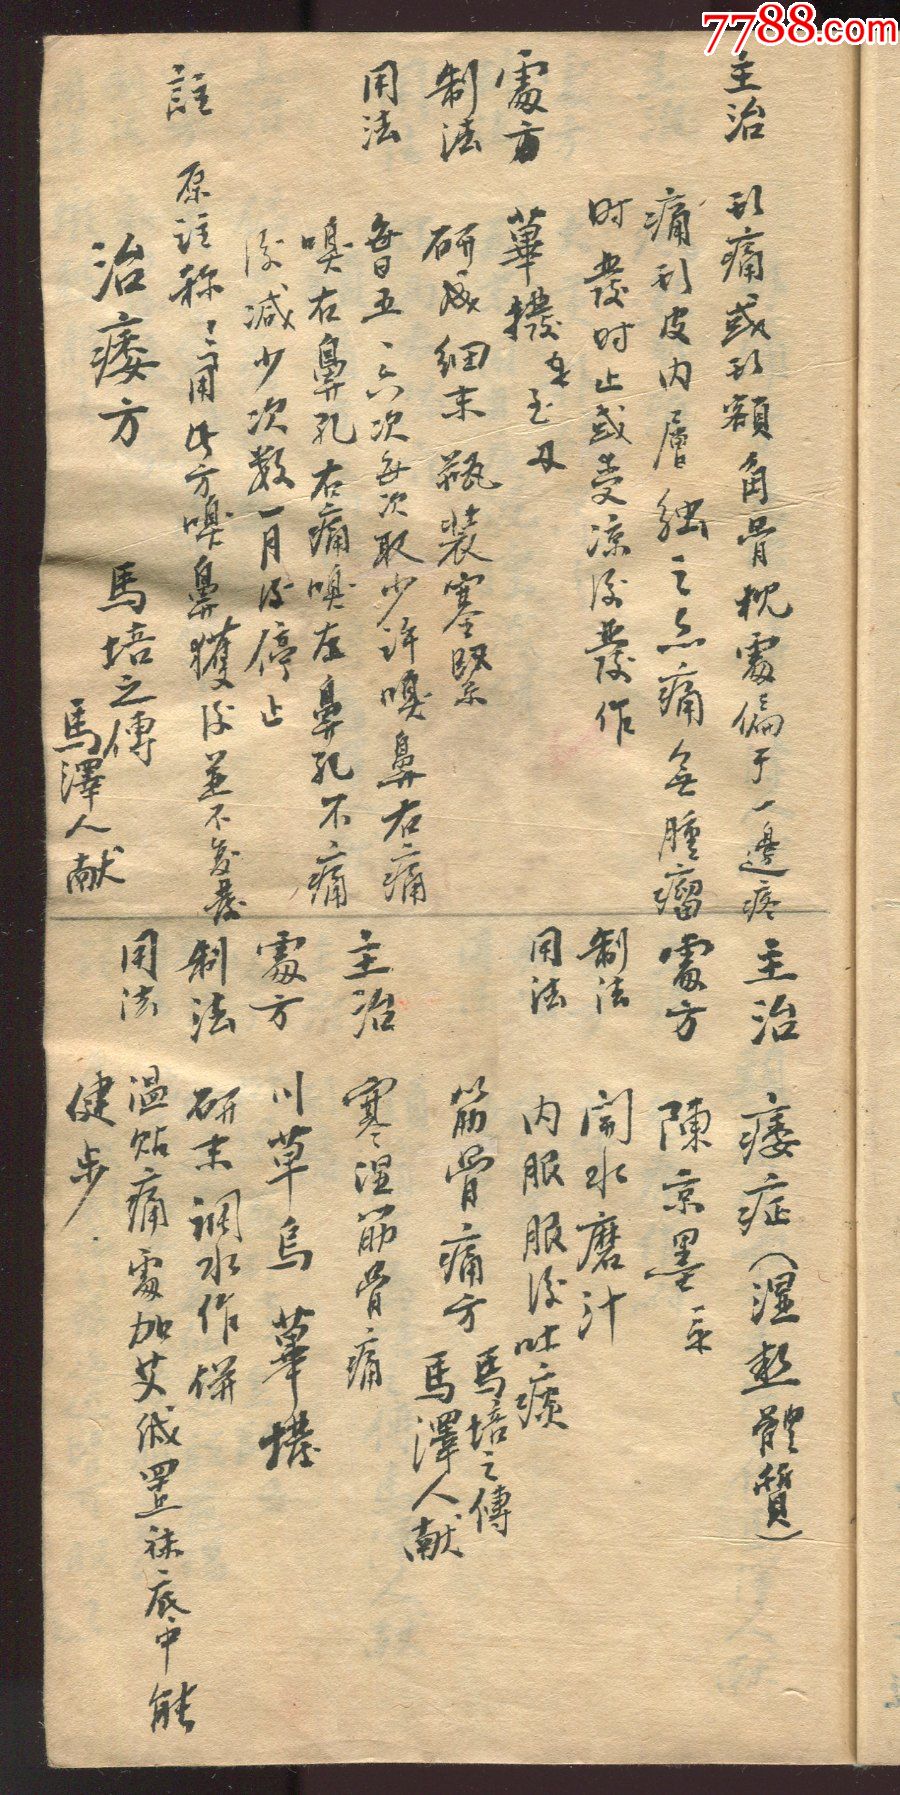 7788.com
主治 头痛或头额角骨枕處偏于一邊疼
痛头皮内層触之亦痛無腫瘤
时發时止或受凉后發作
處方 蓽撥
制法 研成细末瓶装塞緊
用法 每日五、六次每次取少许嗅鼻右痛
嗅右鼻孔右痛嗅左鼻孔不痛
后减少次数一月后停止
註 原註称用此方嗅鼻獲后並不
治痿方 馬培之傳
馬澤人献
主治 痿症（湿热體質）
處方 陳京墨
制法 開水磨汁
用法 内服服后吐痰
筋骨痛方 馬培之傳
馬澤人献
主治 寒湿筋骨痛
處方 川草烏 蓽撥
制法 研末调水作餅
用法 温贴痛處加艾绒置袜底中能
健步.